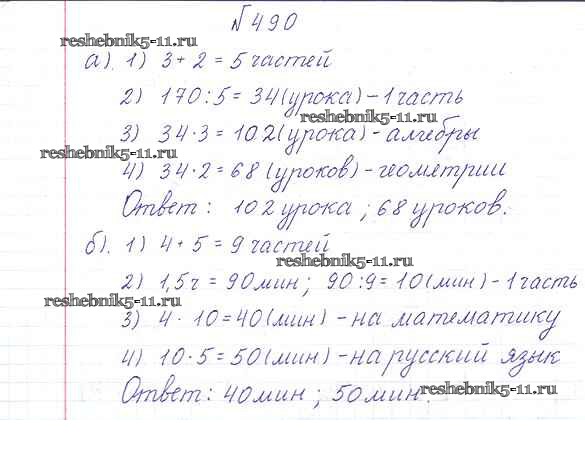 №490
reshebnik5-11.ru
а). 1) 3 + 2 = 5 частей
2) 170 : 5 = 34 (урока) – 1 часть
reshebnik5-11.ru
3) 34 · 3 = 102 (урока) – алгебры
reshebnik5-11.ru
4) 34 · 2 = 68 (уроков) – геометрии
Ответ : 102 урока ; 68 уроков.
б). 1) 4 + 5 = 9 частей
reshebnik5-11.ru
2) 1,5 ч = 90 мин ; 90 : 9 = 10 (мин) – 1 часть
reshebnik5-11.ru
3) 4 · 10 = 40 (мин) – на математику
4) 10 · 5 = 50 (мин) – на русский язык
Ответ : 40 мин ; 50 мин.
reshebnik5-11.ru